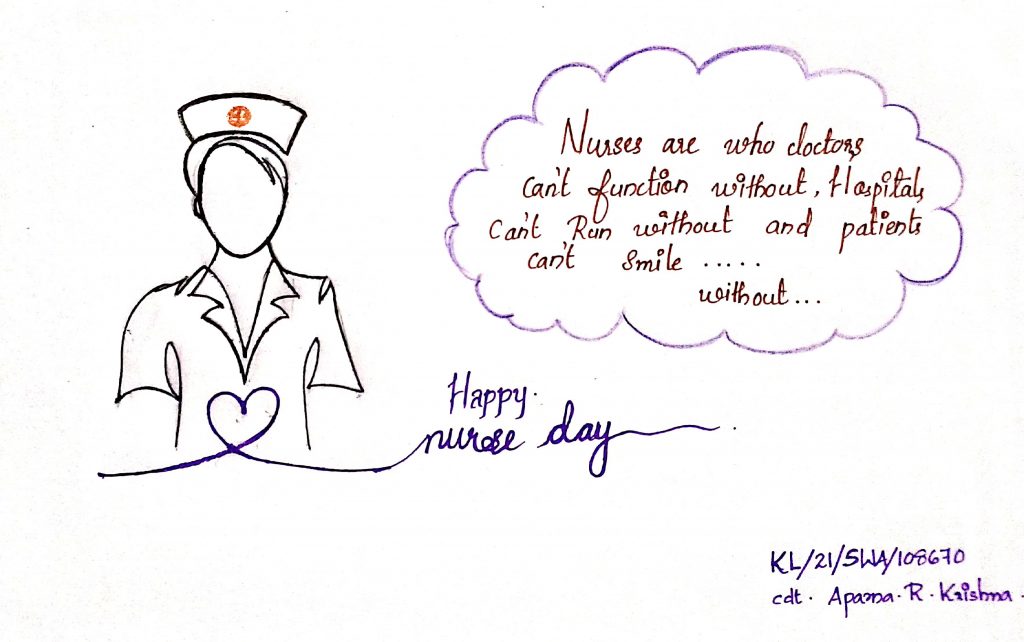 Nurses are who doctors
can't function without, Hospitals
can't Run without and patients
can't smile .....
without...
Happy.
nurse day
KL/21/SWA/108670
cdt. Aparna. R. Krishna.